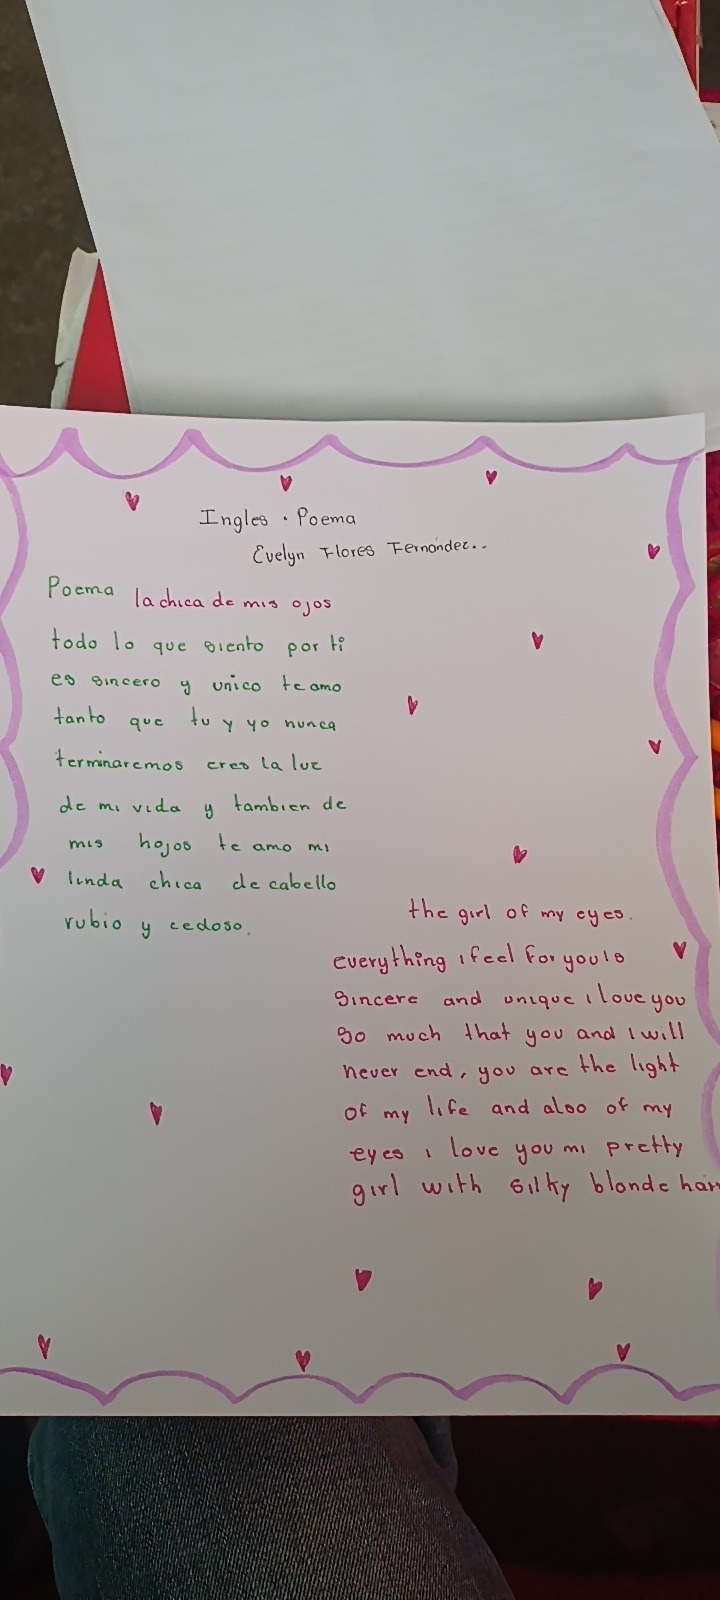 Ingles . Poema
Evelyn Flores Fernández..
Poema la chica de mis ojos
todo lo que siento por ti
es sincero y unico te amo
tanto que tu y yo nunca
terminaremos eres la luz
de mi vida y tambien de
mis hojos te amo mi
linda chica de cabello
rubio y cedoso.
the girl of my eyes.
everything i feel for you is
sincere and unique i love you
so much that you and i will
never end, you are the light
of my life and also of my
eyes i love you mi pretty
girl with silky blonde hair